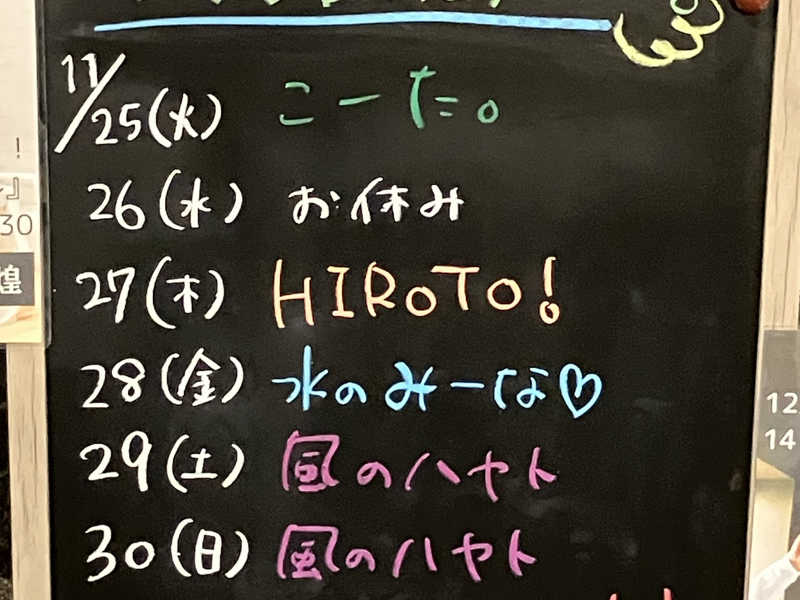 11/25(火) こーた。
26(水) お休み
27(木) HIROTO!
28(金) 水のみーな♡
29(土) 風のハヤト
30(日) 風のハヤト
!
』
30
煌
12
14